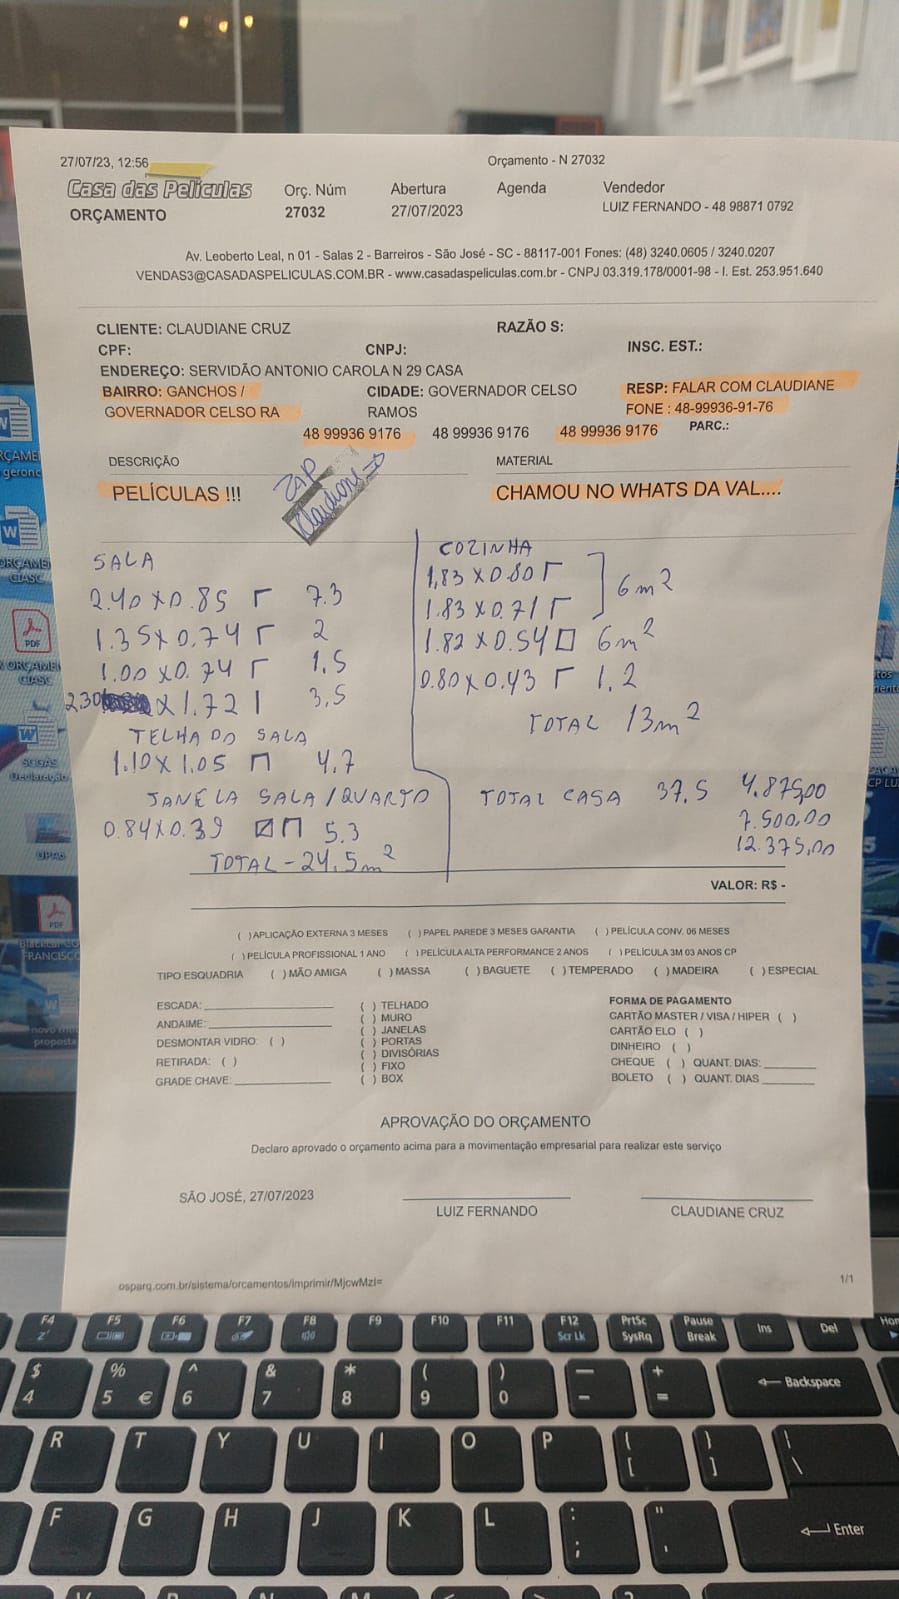 27/07/23, 12:56
Orçamento - N 27032
Casa das Películas
ORÇAMENTO
Orç. Núm
27032
Abertura
27/07/2023
Agenda
Vendedor
LUIZ FERNANDO - 48 98871 0792
Av. Leoberto Leal, n 01 - Salas 2 - Barreiros - São José - SC - 88117-001 Fones: (48) 3240.0605 / 3240.0207
VENDAS3@CASADASPELICULAS.COM.BR - www.casadaspeliculas.com.br - CNPJ 03.319.178/0001-98 - I. Est. 253.951.640
CLIENTE: CLAUDIANE CRUZ
RAZÃO S:
CPF:
CNPJ:
INSC. EST.:
ENDEREÇO: SERVIDÃO ANTONIO CAROLA N 29 CASA
BAIRRO: GANCHOS /
GOVERNADOR CELSO RA
CIDADE: GOVERNADOR CELSO
RAMOS
RESP: FALAR COM CLAUDIANE
FONE : 48-99936-91-76
48 99936 9176 48 99936 9176 48 99936 9176
PARC.:
DESCRIÇÃO
MATERIAL
PELÍCULAS !!!
ZAP
Claudiane
CHAMOU NO WHATS DA VAL....
SALA
2.40 X 0.85 7.3
1.35 X 0.74 2
1.00 X 0.74 1,5
2.30 X 1.72 3,5
TELHADO SALA
1.10 X 1.05 4.7
JANELA SALA/QUARTO
0.84 X 0.39 5.3
TOTAL - 24,5m²
COZINHA
1,83 X 0.80
1.83 X 0.71 6m²
1.82 X 0.54 6m²
0.80 X 0.43 1,2
TOTAL 13m²
TOTAL CASA 37.5 4.875,00
7.500,00
12.375,00
VALOR: R$ -
( ) APLICAÇÃO EXTERNA 3 MESES ( ) PAPEL PAREDE 3 MESES GARANTIA ( ) PELÍCULA CONV. 06 MESES
( ) PELÍCULA PROFISSIONAL 1 ANO ( ) PELÍCULA ALTA PERFORMANCE 2 ANOS ( ) PELÍCULA 3M 03 ANOS CP
TIPO ESQUADRIA ( ) MÃO AMIGA ( ) MASSA ( ) BAGUETE ( ) TEMPERADO ( ) MADEIRA ( ) ESPECIAL
ESCADA:
ANDAIME:
DESMONTAR VIDRO: ( )
RETIRADA: ( )
GRADE CHAVE:
( ) TELHADO
( ) MURO
( ) JANELAS
( ) PORTAS
( ) DIVISÓRIAS
( ) FIXO
( ) BOX
FORMA DE PAGAMENTO
CARTÃO MASTER / VISA / HIPER ( )
CARTÃO ELO ( )
DINHEIRO ( )
CHEQUE ( ) QUANT. DIAS:
BOLETO ( ) QUANT. DIAS
APROVAÇÃO DO ORÇAMENTO
Declaro aprovado o orçamento acima para a movimentação empresarial para realizar este serviço
SÃO JOSÉ, 27/07/2023
LUIZ FERNANDO
CLAUDIANE CRUZ
osparq.com.br/sistema/orcamentos/imprimir/MjcwMzI=
1/1
F4 F5 F6 F7 F8 F9 F10 F11 F12 PrtSc Pause Ins Del
Scr Lk SysRq Break
$ % ^ & * ( ) — +
4 5 € 6 7 8 9 0 - = Backspace
R T Y U I O P { } |
[ ] \
F G H J K L : " Enter
; '